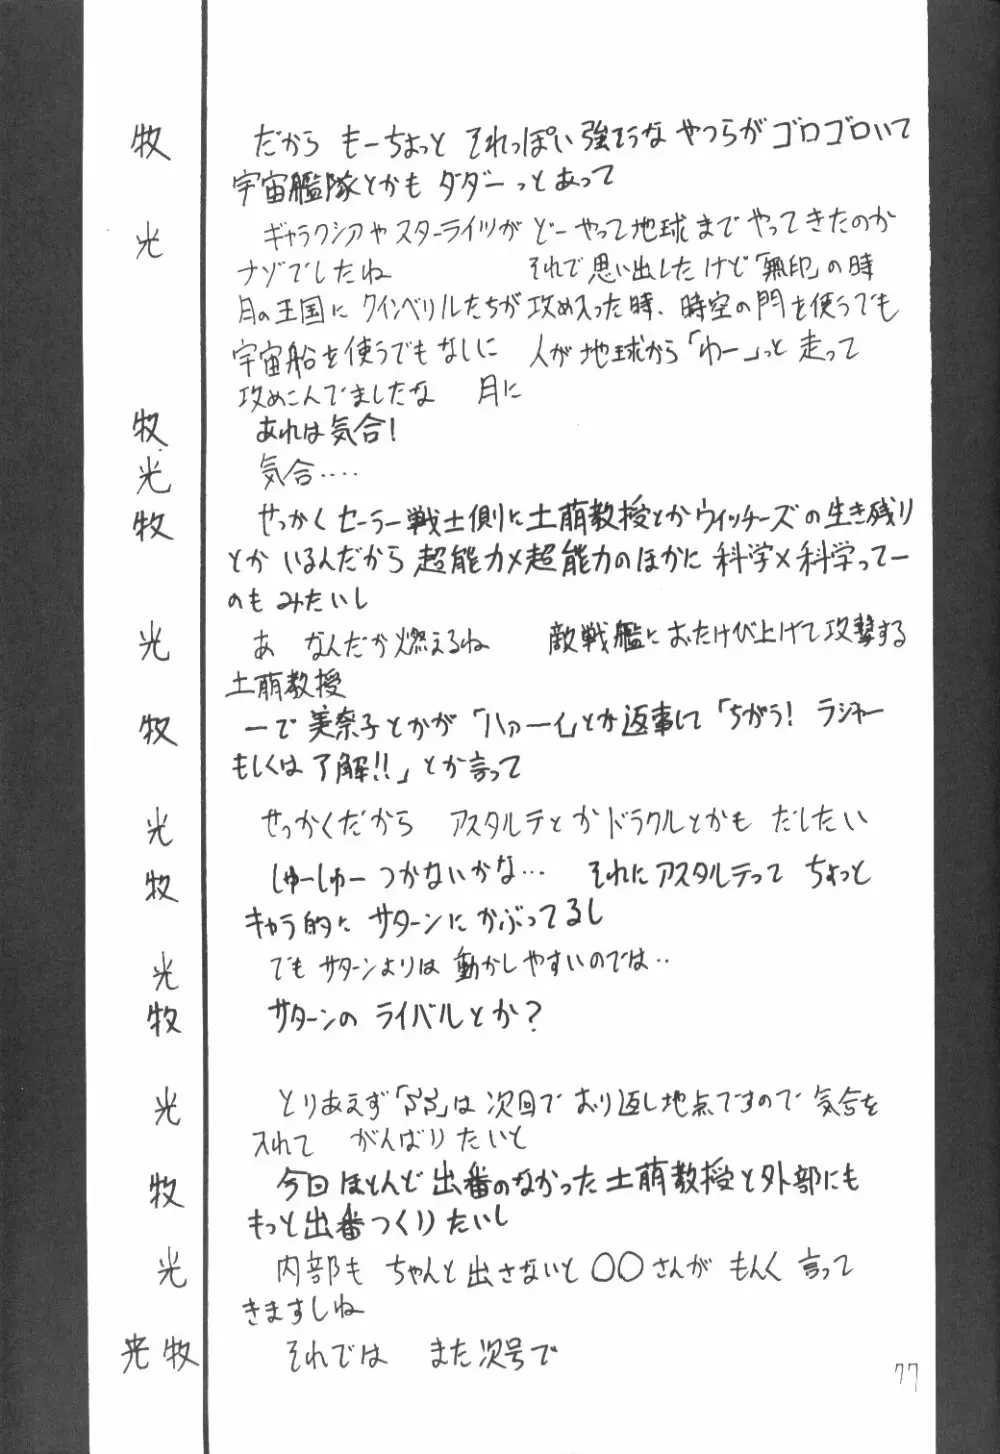 牧 だから もーちょっと それっぽい強そうな やつらがゴロゴロいて
宇宙艦隊とかも ダダーっとあって
光 ギャラクシアやスターライツが どーやって地球まで やってきたのか
ナゾでしたね それで思い出したけど「無印」の時
月の王国に クインベリルたちが攻め入った時、時空の門を使うでも
宇宙船を使うでもなしに 人が地球から「わー」っと走って
攻めこんでましたな 月に
牧 あれは気合!
光 気合‥‥
牧 せっかくセーラー戦士側に土萠教授とかウィッチーズの生き残り
とか いるんだから 超能力×超能力のほかに 科学×科学ってー
のも みたいし
光 あ なんだか燃えるね 敵戦艦におたけび上げて攻撃する
土萠教授
牧 一で 美奈子とかが「ハァーイ」とか返事して「ちがう! ラジャー
もしくは了解!!」とか言って
光 せっかくだから アスタルテとかドラクルとかも だしたい
牧 しゅーしゅー つかないかな‥‥ それにアスタルテって ちょっと
キャラ的に サターンにかぶってるし
光 でも サターンよりは 動かしやすいのでは‥
牧 サターンの ライバルとか?
光 とりあえず「るる」は次回で おり返し地点ですので 気合を
入れて がんばりたいと
牧 今回ほとんど出番のなかった土萠教授と外部にも
もっと出番つくりたいし
光 内部も ちゃんと出さないと〇〇さんが もんく言って
きますしね
光牧 それでは また次号で
77